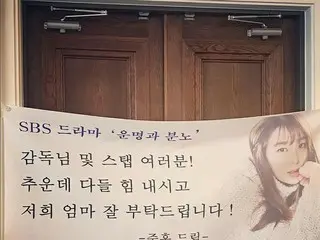 SBS 드라마 ‘운명과 분노’
감독님 및 스탭 여러분!
추운데 다들 힘 내시고
저희 엄마 잘 부탁드립니다!
드림-